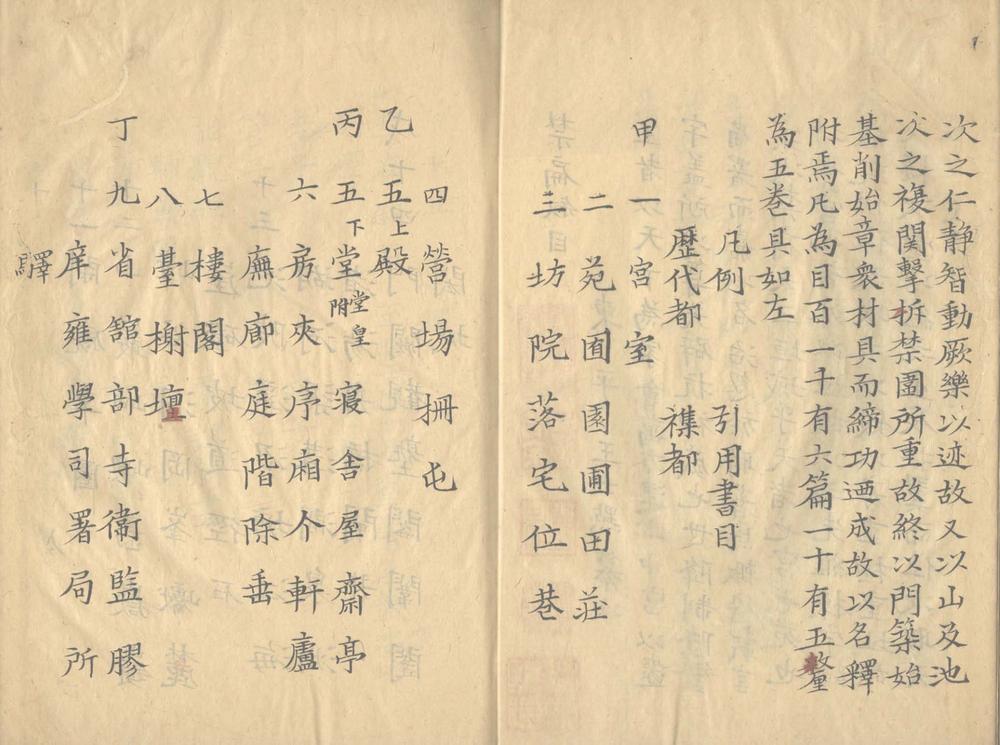 次之仁静智動厥樂以迹故又以山及池
次之複関擊柝禁圖所重故終以門築始
基削始章衆材具而締功迺成故以名釋
附焉凡為目百一十有六篇一十有五釐
為五卷具如左
凡例 引用書目
歴代都 襍都
甲 一 宮 室
二 苑 囿 園 圃 田 莊
三 坊 院 落 宅 位 巷
四 營 場 柵 屯
乙 五上 殿
丙 五下 堂 堂皇附 寢 舎 屋 齋 亭
六 房 夾 序 廂 个 軒 廬
廡 廊 庭 階 除 垂
七 樓 閣
八 臺 榭 壇
丁 九 省 舘 部 寺 衞 監 膠
庠 雍 學 司 署 局 所
驛